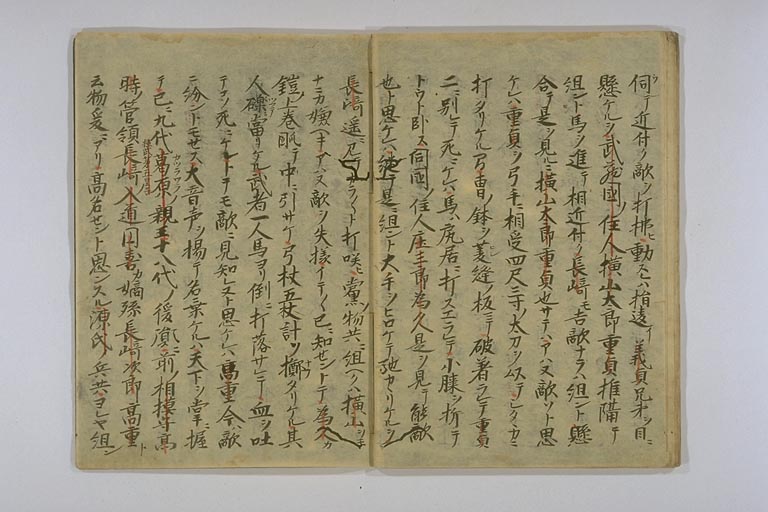 伺テ近付ク敵ヲ打拂ヒ動スレハ指違テ義貞兄才ヲ目ニ
懸ケルヲ武蔵國ノ住人横山太郎重真推隔テ
組ント馬ヲ進テ相近付ク長崎モ吉敵ナラハ組ント懸
合テ是ヲ見ルニ横山太郎重真也サテハアハヌ敵ソト思
ケレハ重真ヲ弓手ニ相受四尺三寸ノ太刀ヲ以テ
打タリケル冑ノ鉢ヲ菱縫ノ板マテ破著ラレテ重真
二ニ別レテ死ニケレハ馬ハ尻居ニ打スエラレテ小膝ヲ折テ
トウト臥ス同國ノ住人庄三郎為久是ヲ見テ能敵
也ト思ケレハ続テ是ニ組ント大手ヲヒロケテ馳セカヽリケルヲ
長崎遥ニ見テカラ〱ト打咲ヒ黨ノ物共ニ組ヘクハ横山ヲモ
ナニカハ嫌ヘキアハヌ敵ヲ失様イテ〱己ニ知セントテ為久カ
鎧ノ上巻𤔩テ中ニ引サケ弓杖五杖計ヅ擲タリケル其
人礫ニ當リケル武者二人馬ヨリ倒ニ打落サレテ血ヲ吐
テ死ニケリトテモ敵ニ見知レヌト思ケレハ高重今ハ敵
ニ紛ントモセス大音声ヲ揚テ名乗ケルハ天下ヲ掌ニ握
テ已ニ九代葛原ノ親王十八代ノ後胤前相模守高
時ノ管領長崎入道円喜カ嫡孫長崎次郎高重ト
云物爰ニアリ高名セント思ンスル源氏ノ兵共ヨレヤ組ン